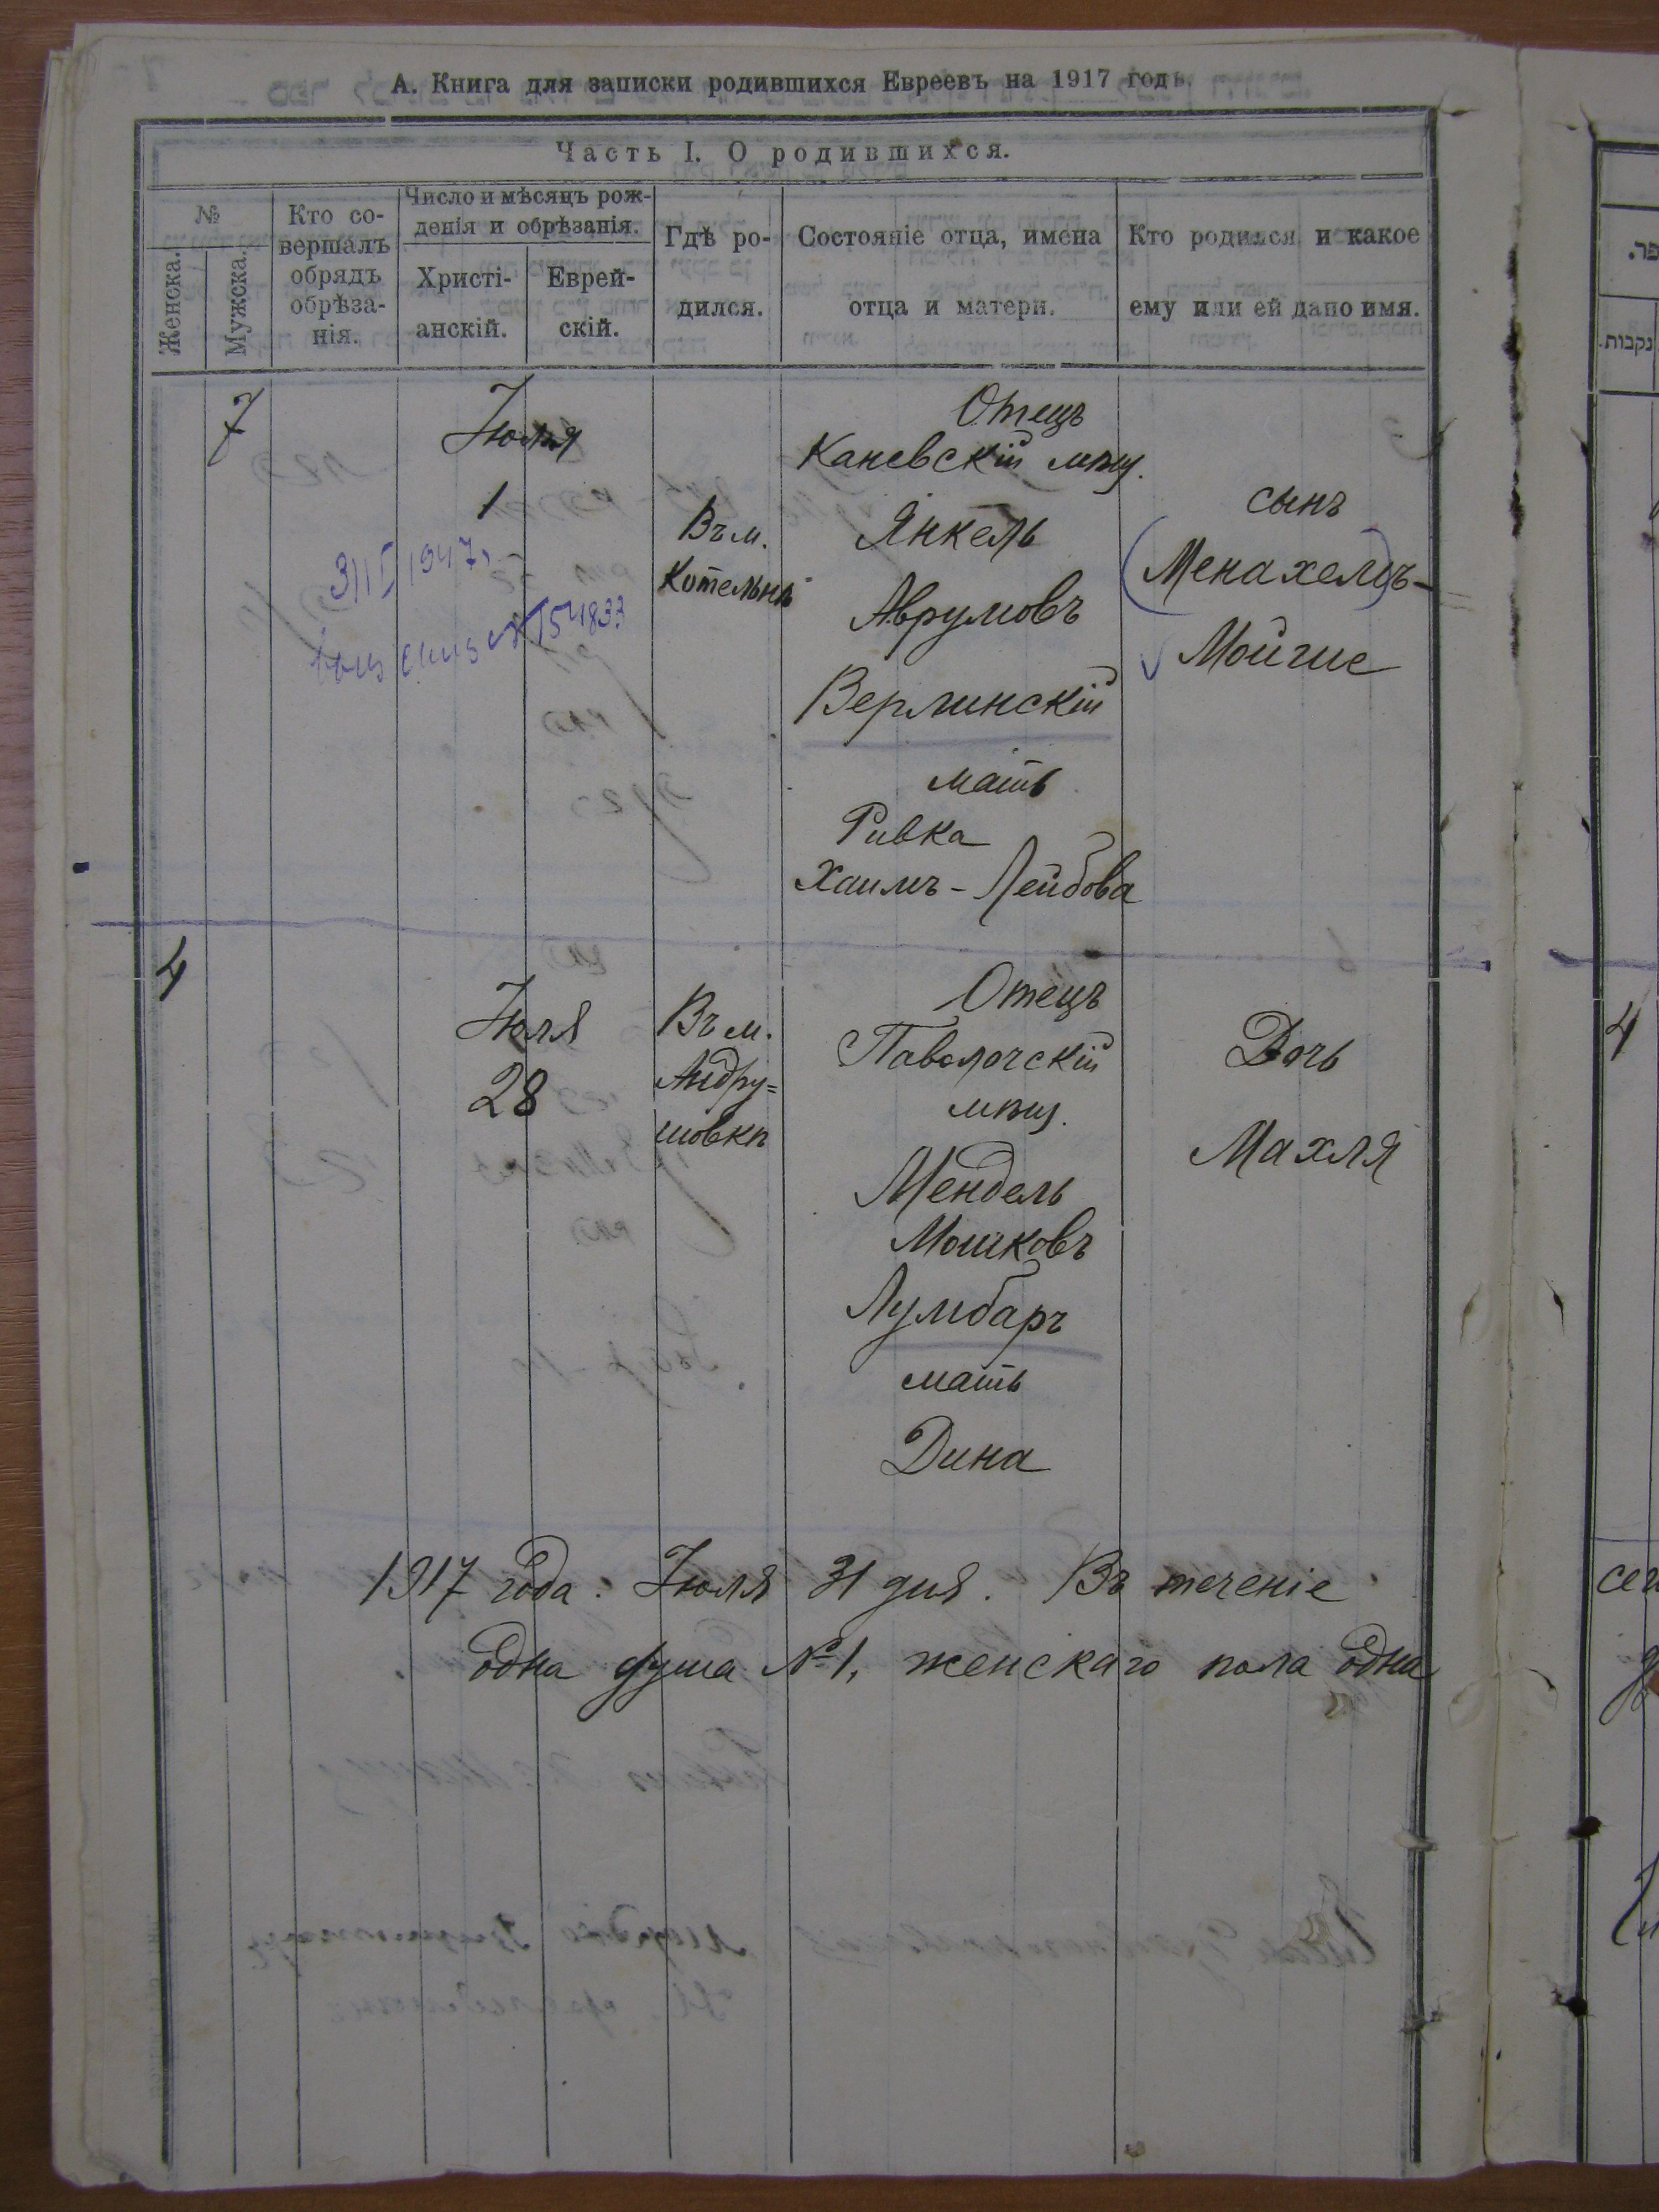 А. Книга для записки родившихся Евреевъ на 1917 годъ.
Часть I. О родившихся.
№
Женска.
Мужска.
Кто со-
вершалъ
обрядъ
обрѣза-
нія.
Число и мѣсяцъ рож-
денія и обрѣзанія.
Христі-
анскій.
Еврей-
скій.
Гдѣ ро-
дился.
Состояніе отца, имена
отца и матери.
Кто родился и какое
ему или ей дано имя.
7
Июля
1
Въ м.
Котельнѣ
Отецъ
Каневскій мѣщ.
Янкель
Аврумовъ
Верлинскій
мать
Ривка
Хаимъ-Лейбова
сынъ
(Менахемъ)-
Мойше
4
Июля
28
Въ м.
Андру=
шовкѣ
Отецъ
Паволочскій
мѣщ.
Мендель
Мошковъ
Лумбаръ
мать
Дина
Дочь
Махля
1917 года. Июля 31 дня. Въ теченіе
одна душа №1, женскаго пола одна
פר.
נקבות.
4